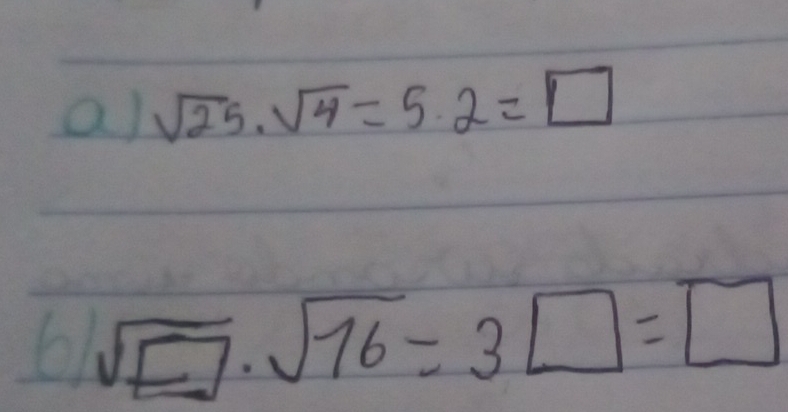 a) √25 . √4 = 5 . 2 = □
b) √□ . √16 = 3 □ = □